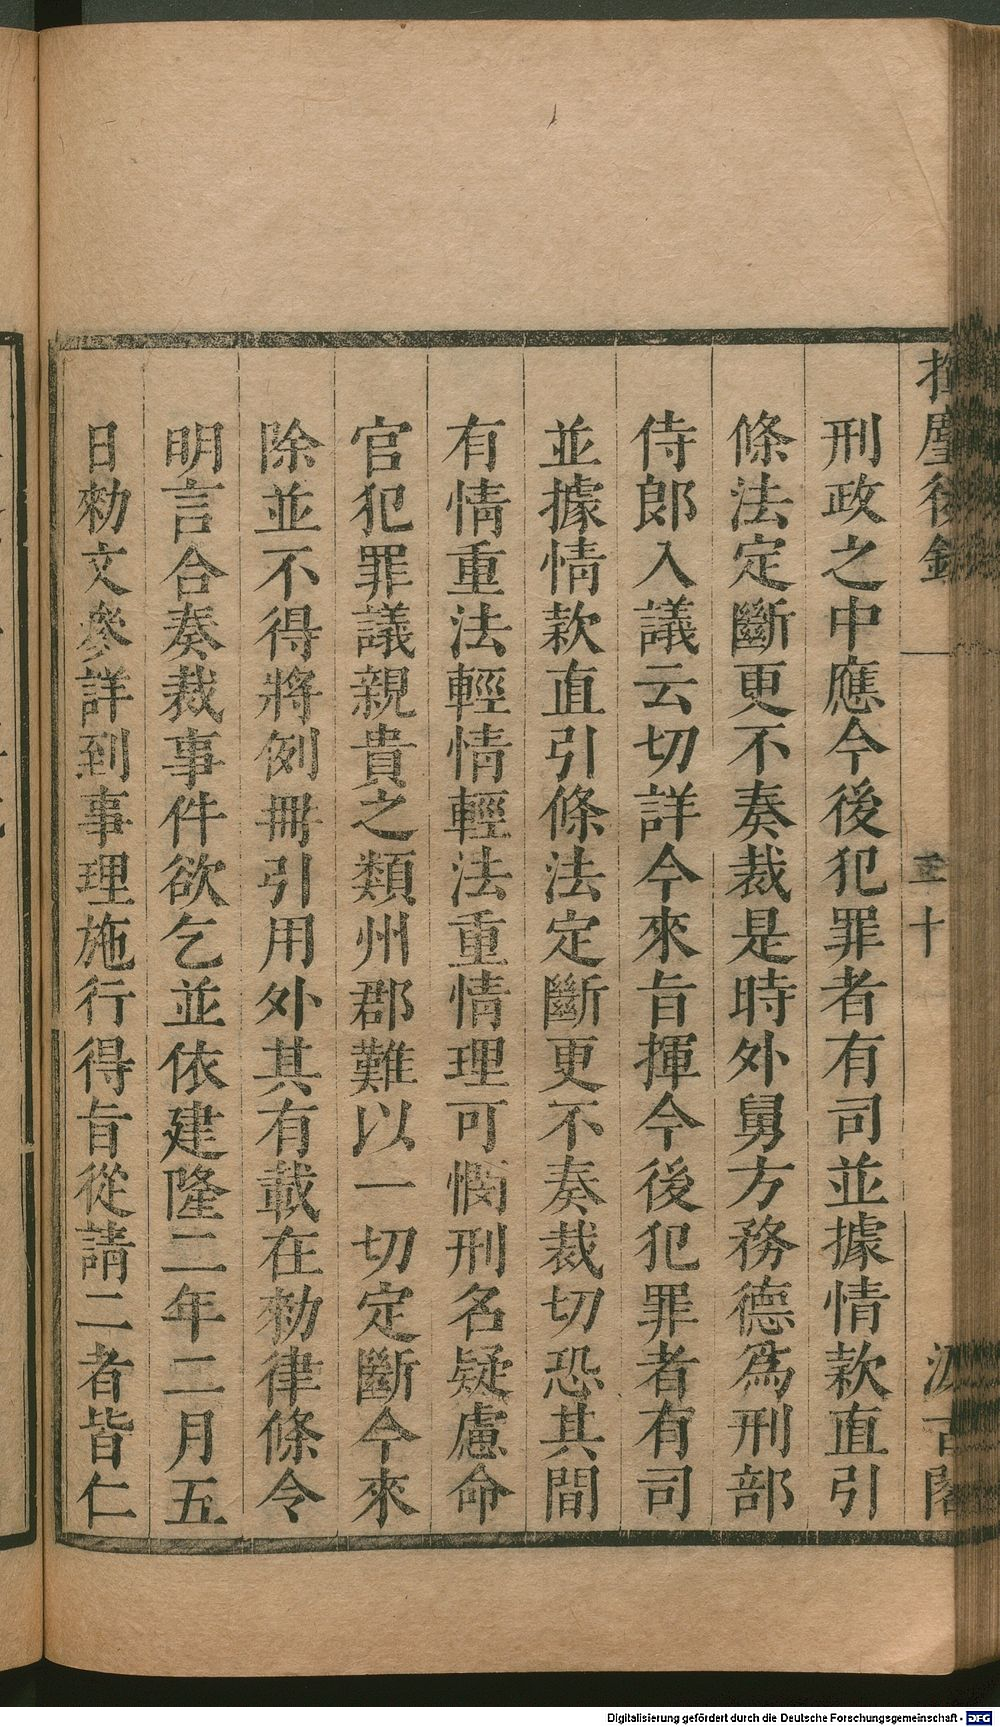 揮麈後錄
十
汲古閣
刑政之中應今後犯罪者有司並據情款直引
條法定斷更不奏裁是時外舅方務德爲刑部
侍郎入議云切詳今來旨揮今後犯罪者有司
並據情款直引條法定斷更不奏裁切恐其間
有情重法輕情輕法重情理可憫刑名疑慮命
官犯罪議親貴之類州郡難以一切定斷今來
除並不得將例冊引用外其有載在勑律條令
明言合奏裁事件欲乞並依建隆二年二月五
日勑文參詳到事理施行得旨從請二者皆仁
Digitalisierung gefördert durch die Deutsche Forschungsgemeinschaft - DFG